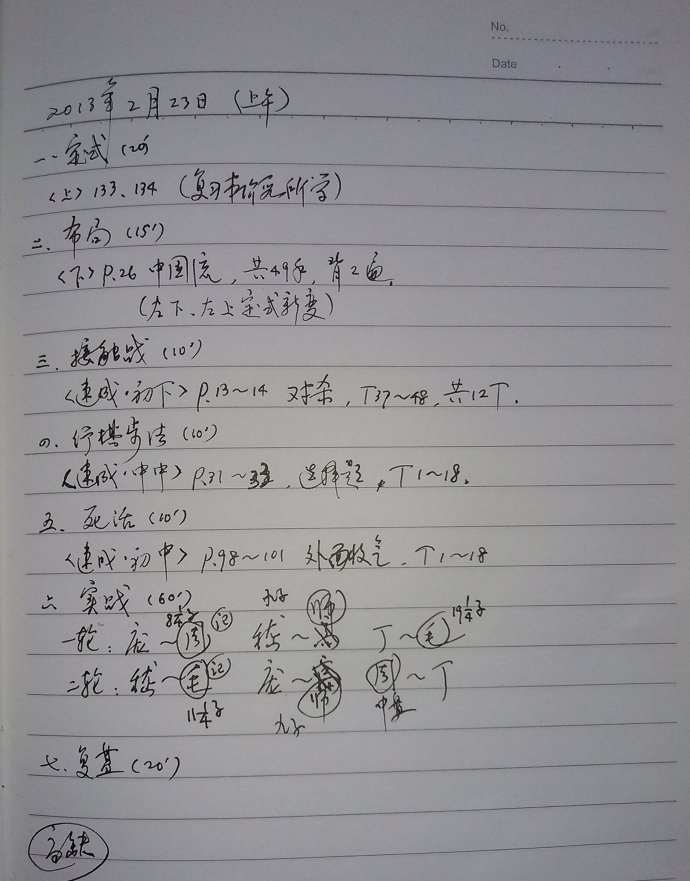 No.
Date
2013年2月23日 (上午)
一、定式 (20')
<上> 133、134 (复习本阶段所学)
二、布局 (15')
<下> P.26 中国流，共49手，背2遍。
(左下、左上定式新变)
三、接触战 (10')
<速成·初下> P.13~14 对杀，T37~48，共12T.
四、行棋步法 (10')
<速成·中中> P.31~ 选择题，T1~18。
五、死活 (10')
<速成·初中> P.98~101 外面收气. T1~18
六、实战 (60')
九子 19 1/4子
一轮: 庞~周 记 嵇~师 丁~毛
二轮: 嵇~毛 记 庞~师 周~丁
11 1/4子 九子 中盘
七、复盘 (20')
高缺